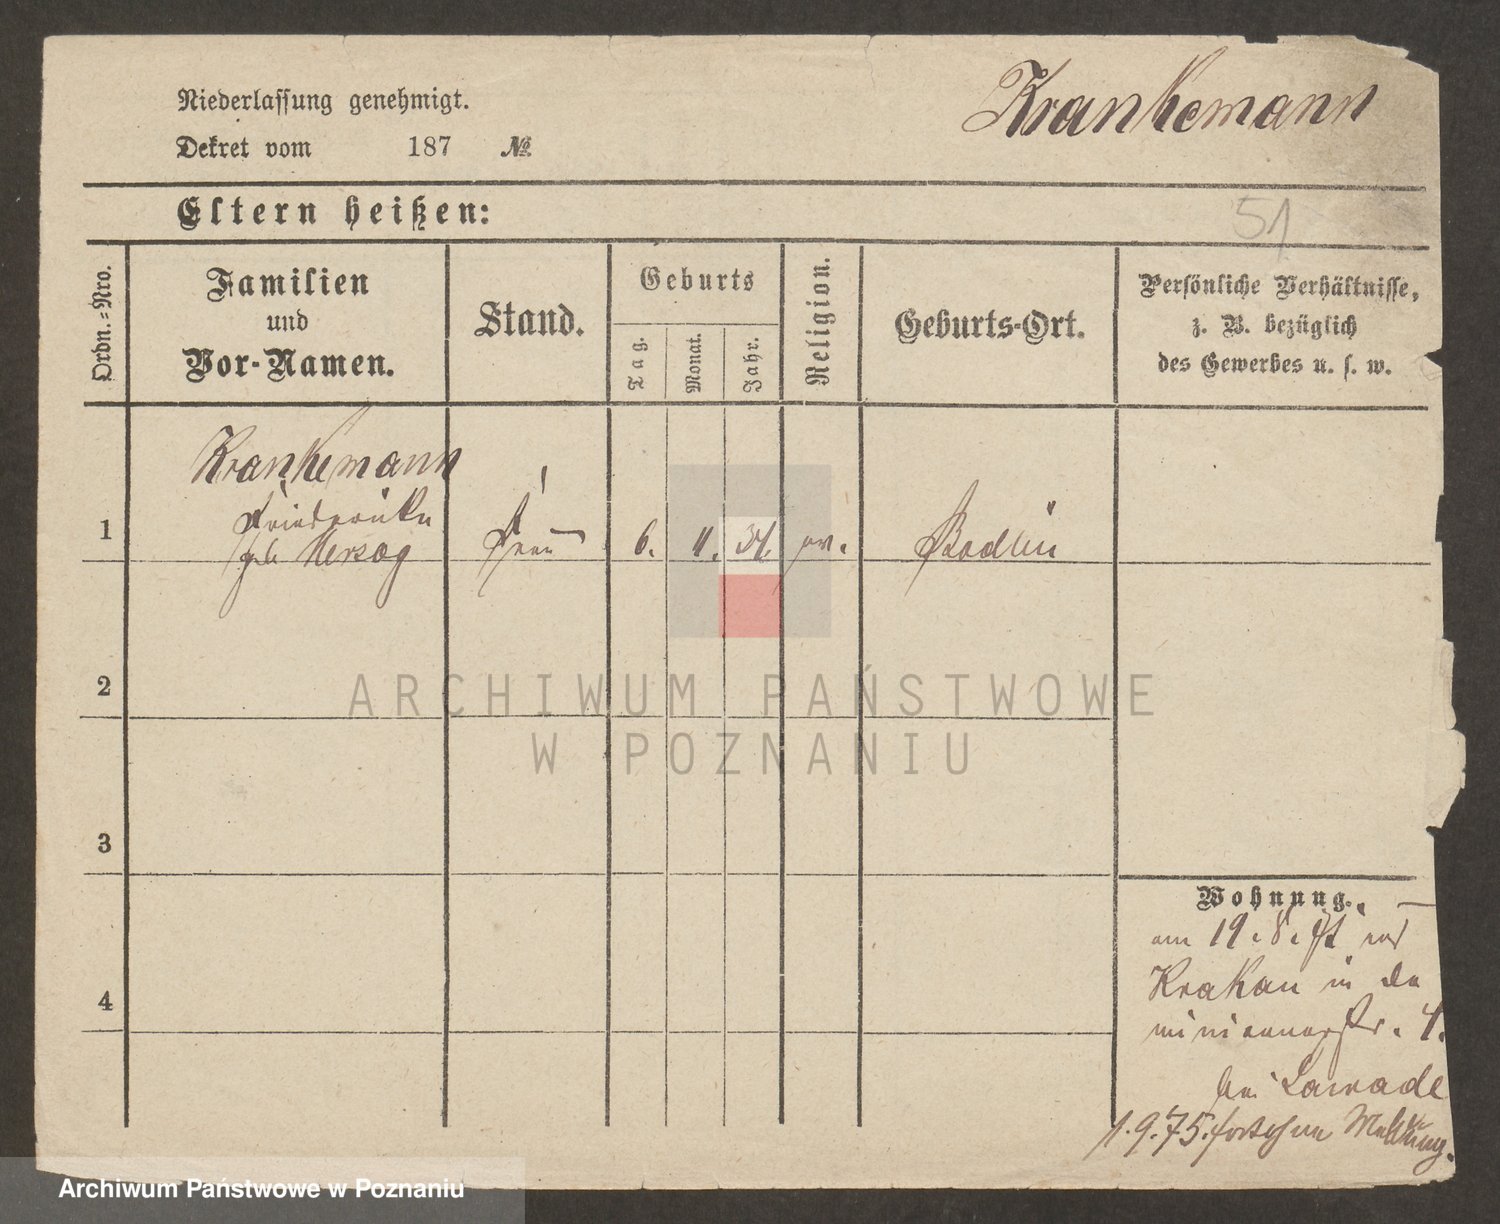 Niederlassung genehmigt.
Krankemann
Dekret vom 187 №
Eltern heißen:
51
Ordn.-Nro.
Familien
und
Vor-Namen.
Stand.
Geburts
Tag.
Monat.
Jahr.
Religion.
Geburts-Ort.
Persönliche Verhältnisse,
z. B. bezüglich
des Gewerbes u. s. w.
1
Krankemann
Friederike
geb Herzog
Frau
6. 4.
ev.
2
3
4
Wohnung.
am 19. 8. aus
Krakau in Do
minicanerstr. 4.
bei
1.9.75. fort ohne Meldung.
ARCHIWUM PAŃSTWOWE
W POZNANIU
Archiwum Państwowe w Poznaniu